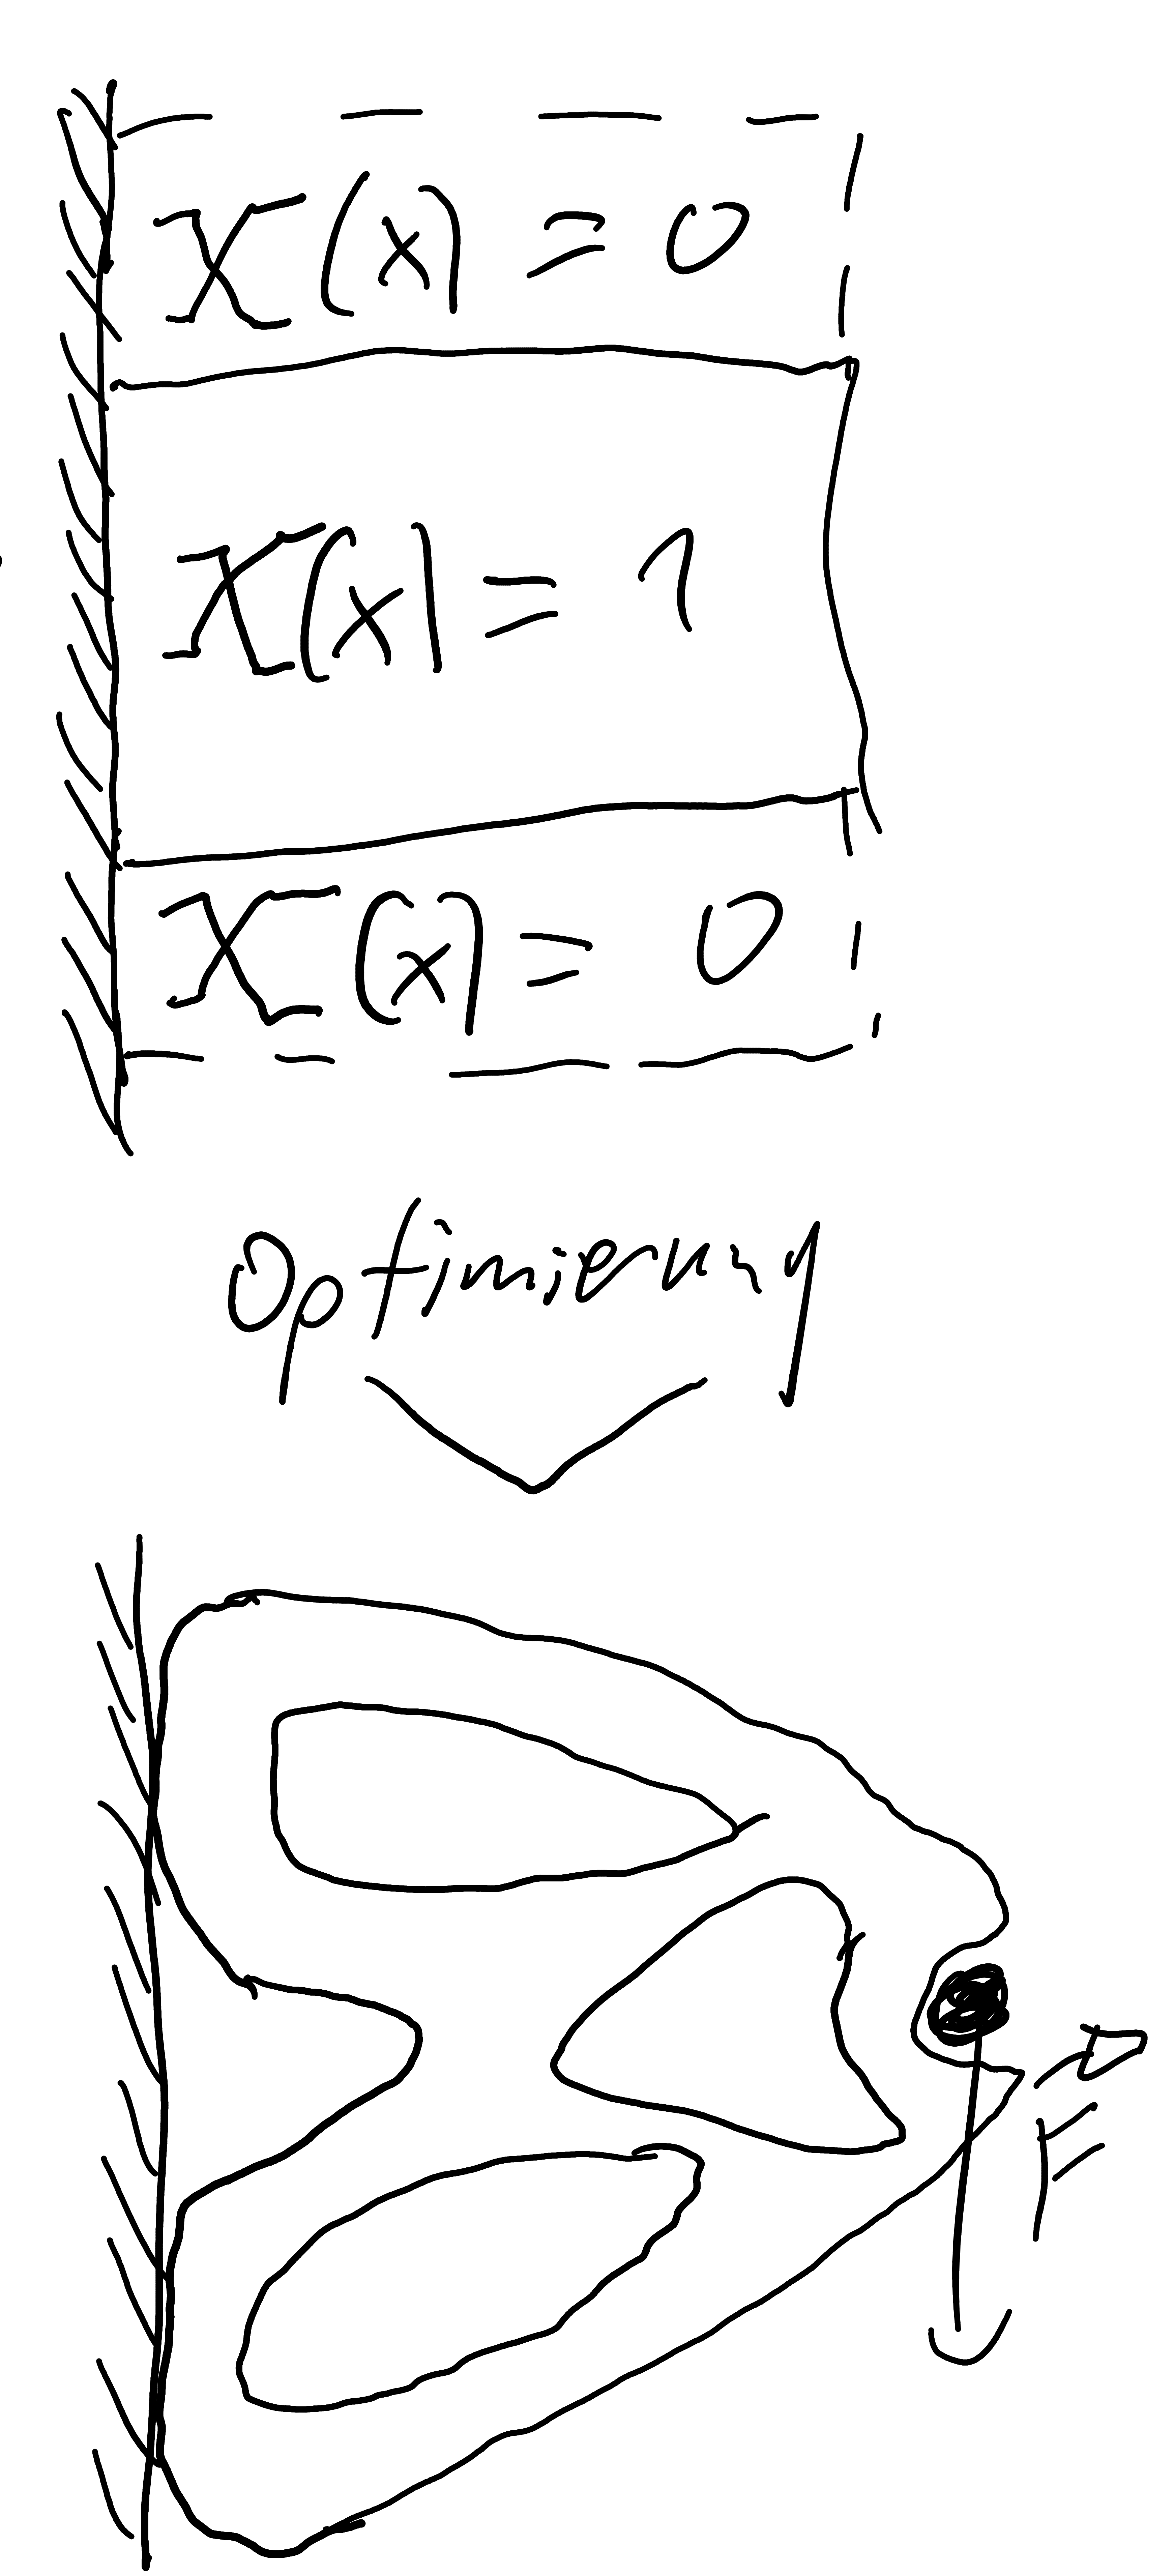 X(x) = 0
X(x) = 1
X(x) = 0
Optimierung
F